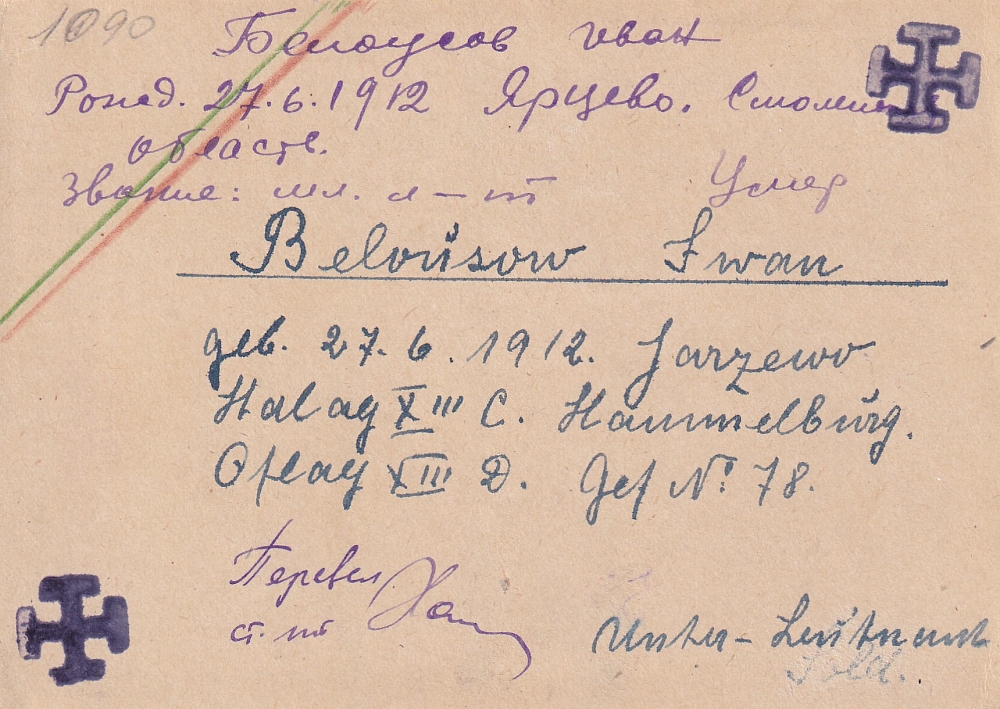 1090
Белоусов Иван
Рожд. 27.6.1912 Ярцево. Смоленск
областъ.
Звание: мл. л-т Умер
Beloŭsow Iwan
geb. 27.6.1912. Jarzewo
Stalag XIII C. Hammelbŭrg.
Oflag XIII D. Gef № 78.
Перевел
ст. лт
Unter-Leŭtnant
Sold.